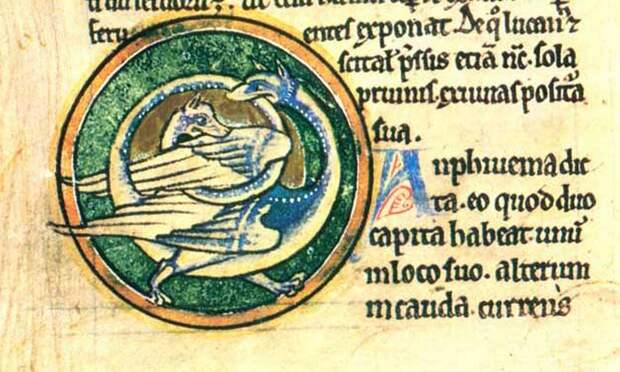 feru entes exponat. De q̄ lucan⁹ ⁊
scital' sp̄sis etiā nc̄. sola
pruinis. exuuias posita
sua.
Anphiuema dic
ta. eo quod duo
capita habeat. unū
in loco suo. alterum
in cauda. currens